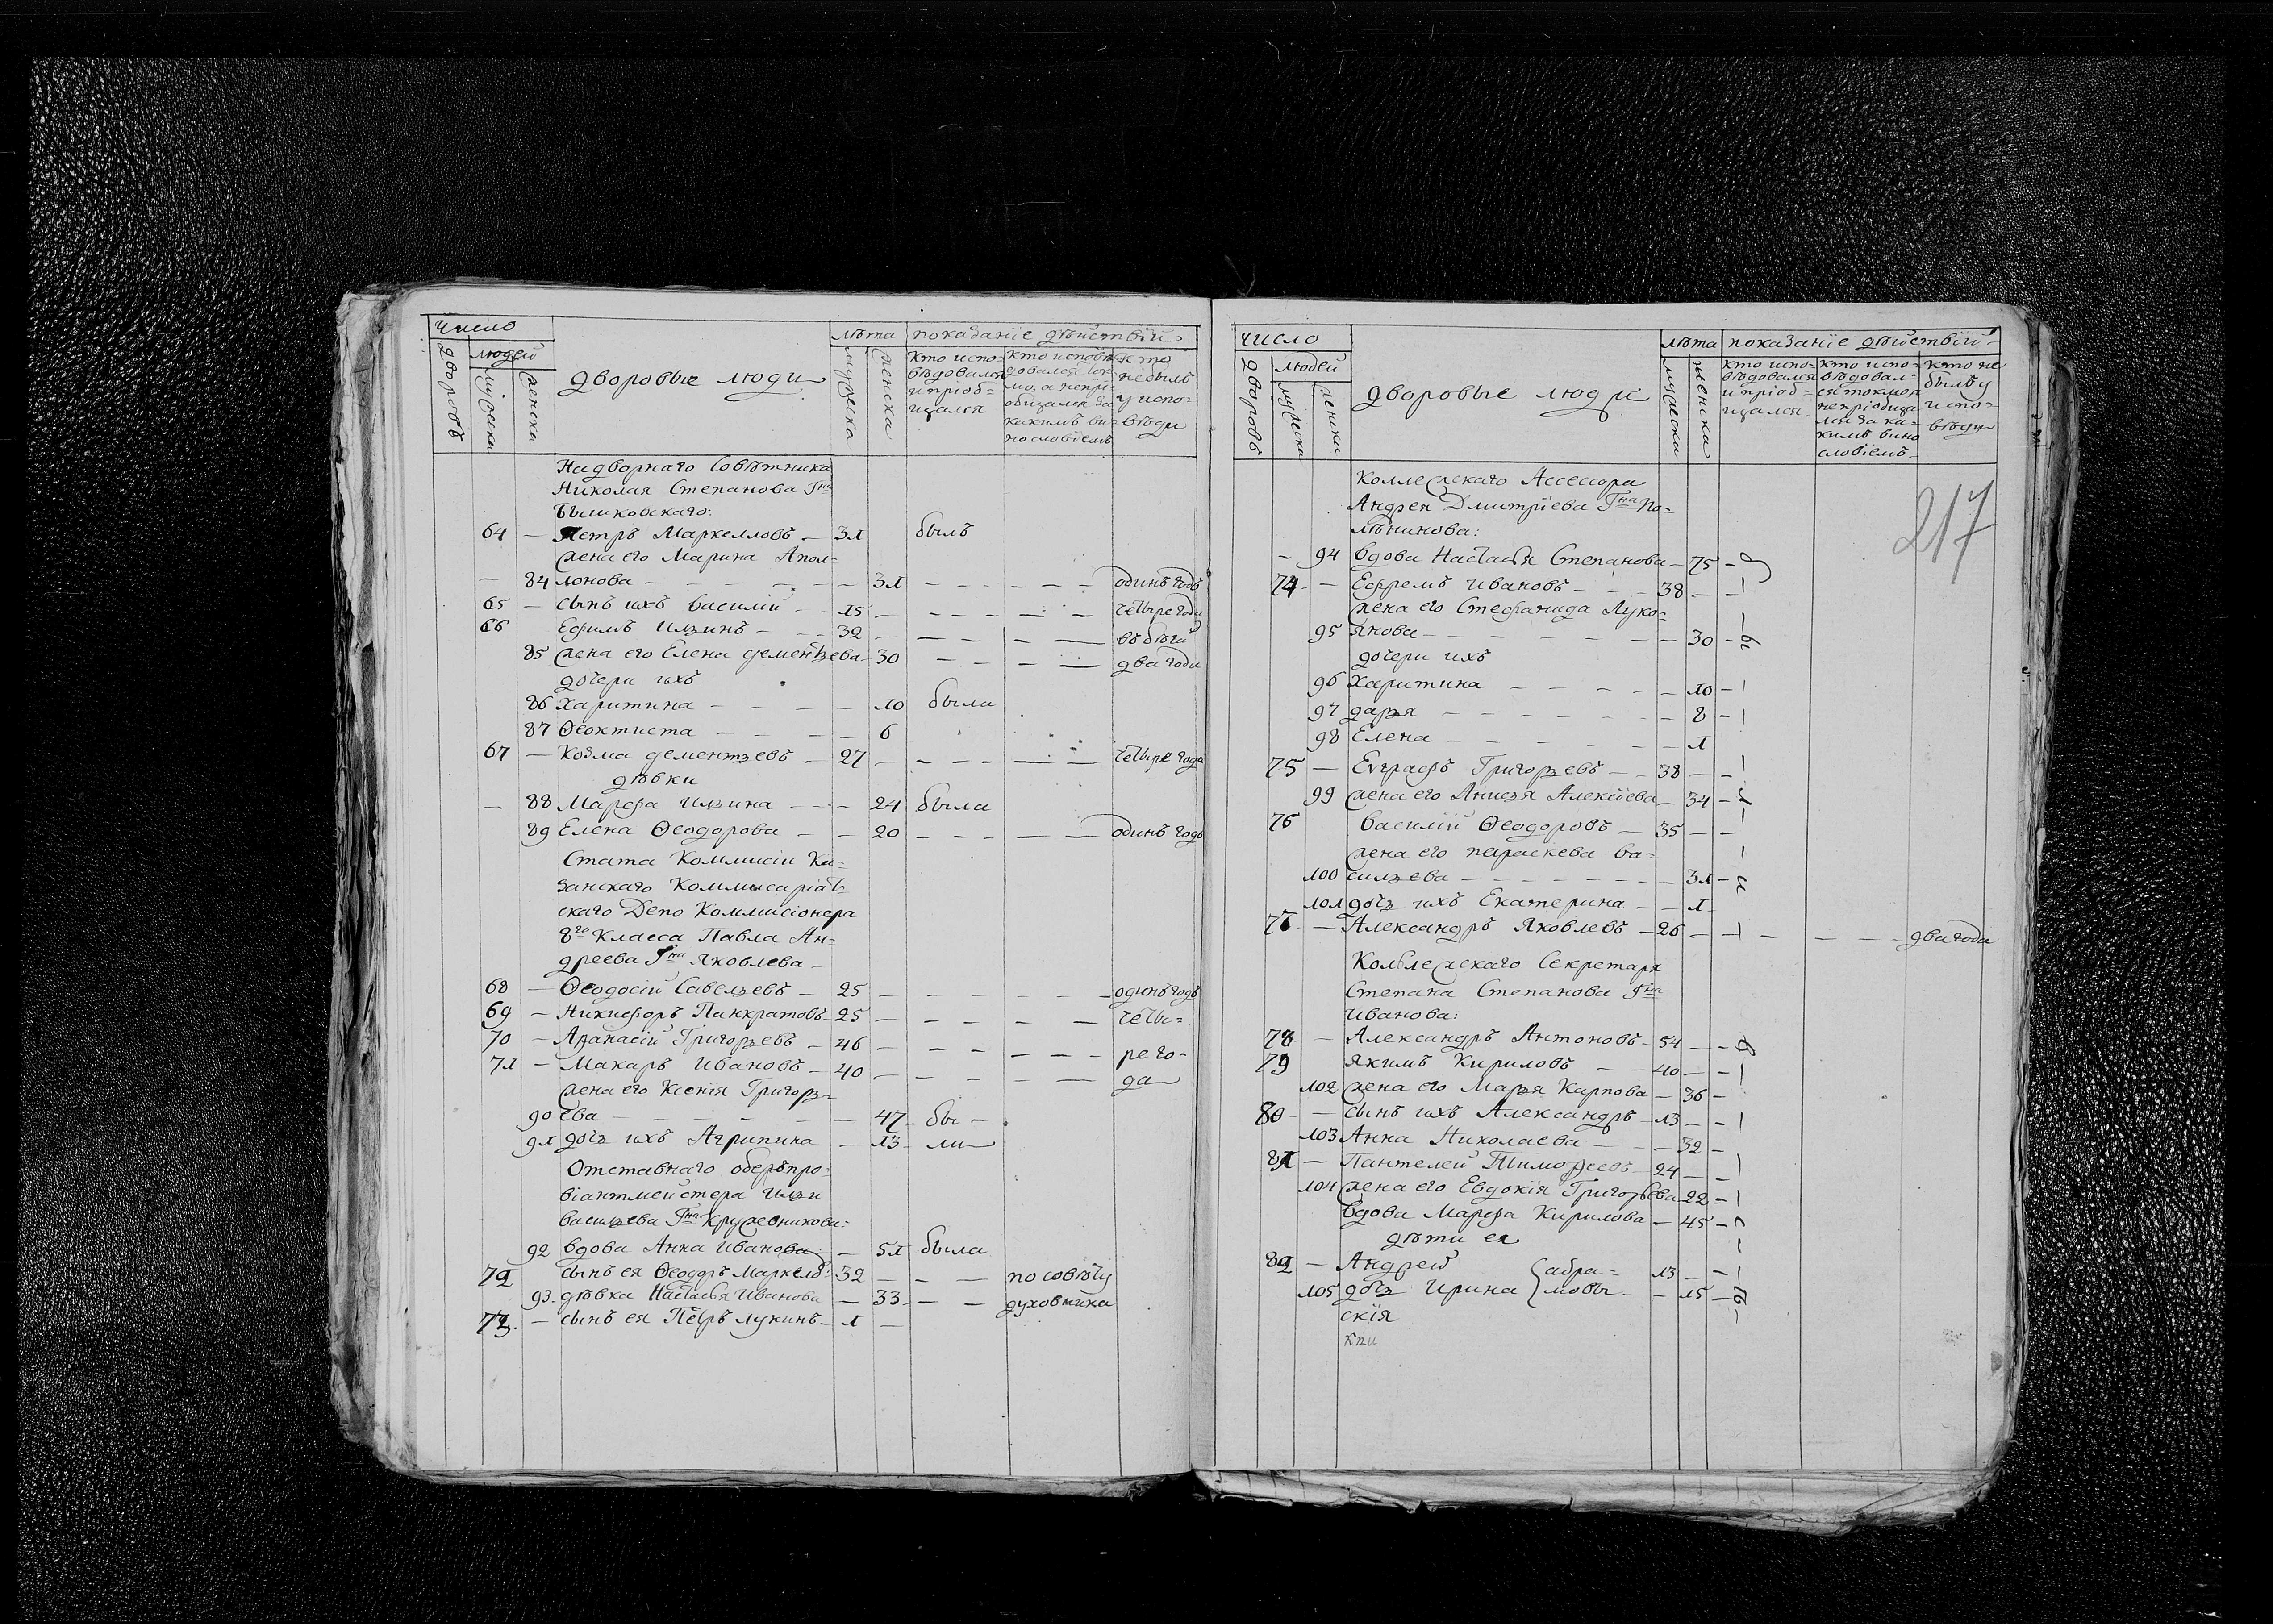 число
лѣта показанїе дѣйствїй
дворовъ
людей
мужска
женска
дворовые люди
мужска
женска
кто испо-
вѣдовался
и прїоб=
щался
кто исповѣ
довался ток
мо, а непрї
общался за
какимъ ви
нословїемъ
кто
небылъ
у испо-
вѣди
Надворнаго Совѣтника
Николая Степанова Гна
64 — Петръ Маркелловъ — 31 былъ
жена его Марина Апол=
— 84 лонова — 31 — одинъ годъ
65 — сынъ ихъ Василїй — 15 — четыре года
66 Ефимъ Ильинъ — 32 — въ бѣга
85 жена его Елена Дементьева — 30 — два года
дочери ихъ
86 Харитина — 10 была
87 Ѳеоктиста — 6
67 — Козма Дементьевъ — 27 — четыре года
дѣвки
— 88 Марѳа Ильина — 24 была
89 Елена Ѳеодорова — 20 — одинъ годъ
Стата Коммисїи Ка=
занскаго Коммисарїат-
скаго Депо Коммисїонера
8го Класса Павла Ан=
дреева Гна Яковлева
68 — Ѳеодосїй Савельевъ — 25 — одинъ годъ
69 — Никифоръ Панкратовъ — 25 — четы=
70 — Аѳанасїй Григорьевъ — 46 — ре го-
71 — Макаръ Ивановъ — 40 — да
жена его Ксенїя Григорь=
90 ева — 47 бы-
91 дочь ихъ Агрипина — 13 ли
Отставнаго оберъ про-
вїантмейстера Ильи
Васильева Гна Кружевникова:
92 вдова Анна Иванова — 51 была
72 сынъ ея Ѳеодоръ Маркелов 32 — по совѣту
93 дѣвка Настасья Иванова — 33 — духовника
73. — сынъ ея Петръ Лукинъ — 1 —
число
лѣта показанїе дѣйствїй
дворовъ
людей
мужска
женска
дворовые люди
мужска
женска
кто испо-
вѣдовался
и прїоб=
щался
кто испо-
вѣдовал-
ся токмо а
непрїобща
лся за ка-
кимъ вино
словїемъ
кто не
былъ у
испо=
вѣди
217
Коллежскаго Ассессора
Андрея Дмитрїева Гна По-
лѣнинова:
— 94 вдова Настасья Степанова — 75 —
74 — Ефремъ Ивановъ — 38 —
жена его Стефанида Луко=
95 янова — 30 —
дочери ихъ
96 Харитина — 10 —
97 Дарья — 8 —
98 Елена — 1
75 — Евграфъ Григорьевъ — 38 —
99 жена его Анисья Алексїева — 34 —
76 Василїй Ѳеодоровъ — 35 —
жена его Параскева Ва=
100 сильева — 31 —
101 дочь ихъ Екатерина — 1
77 — Александръ Яковлевъ — 26 — два года
Коллежскаго Секретаря
Степана Степанова Гна
Иванова:
78 — Александръ Антоновъ — 54 —
79 Якимъ Кириловъ — 40 —
102 жена его Марья Карпова — 36 —
80 — сынъ ихъ Александръ — 13 —
103 Анна Николаева — 32 —
81 — Пантелей Тимоѳеевъ 24 —
104 жена его Евдокїя Григорьева 22 —
вдова Марѳа Кирилова — 45 —
дѣти ея
82 — Андрей абра= 13 —
105 дочь Ирина мовы — 15 —
скїя